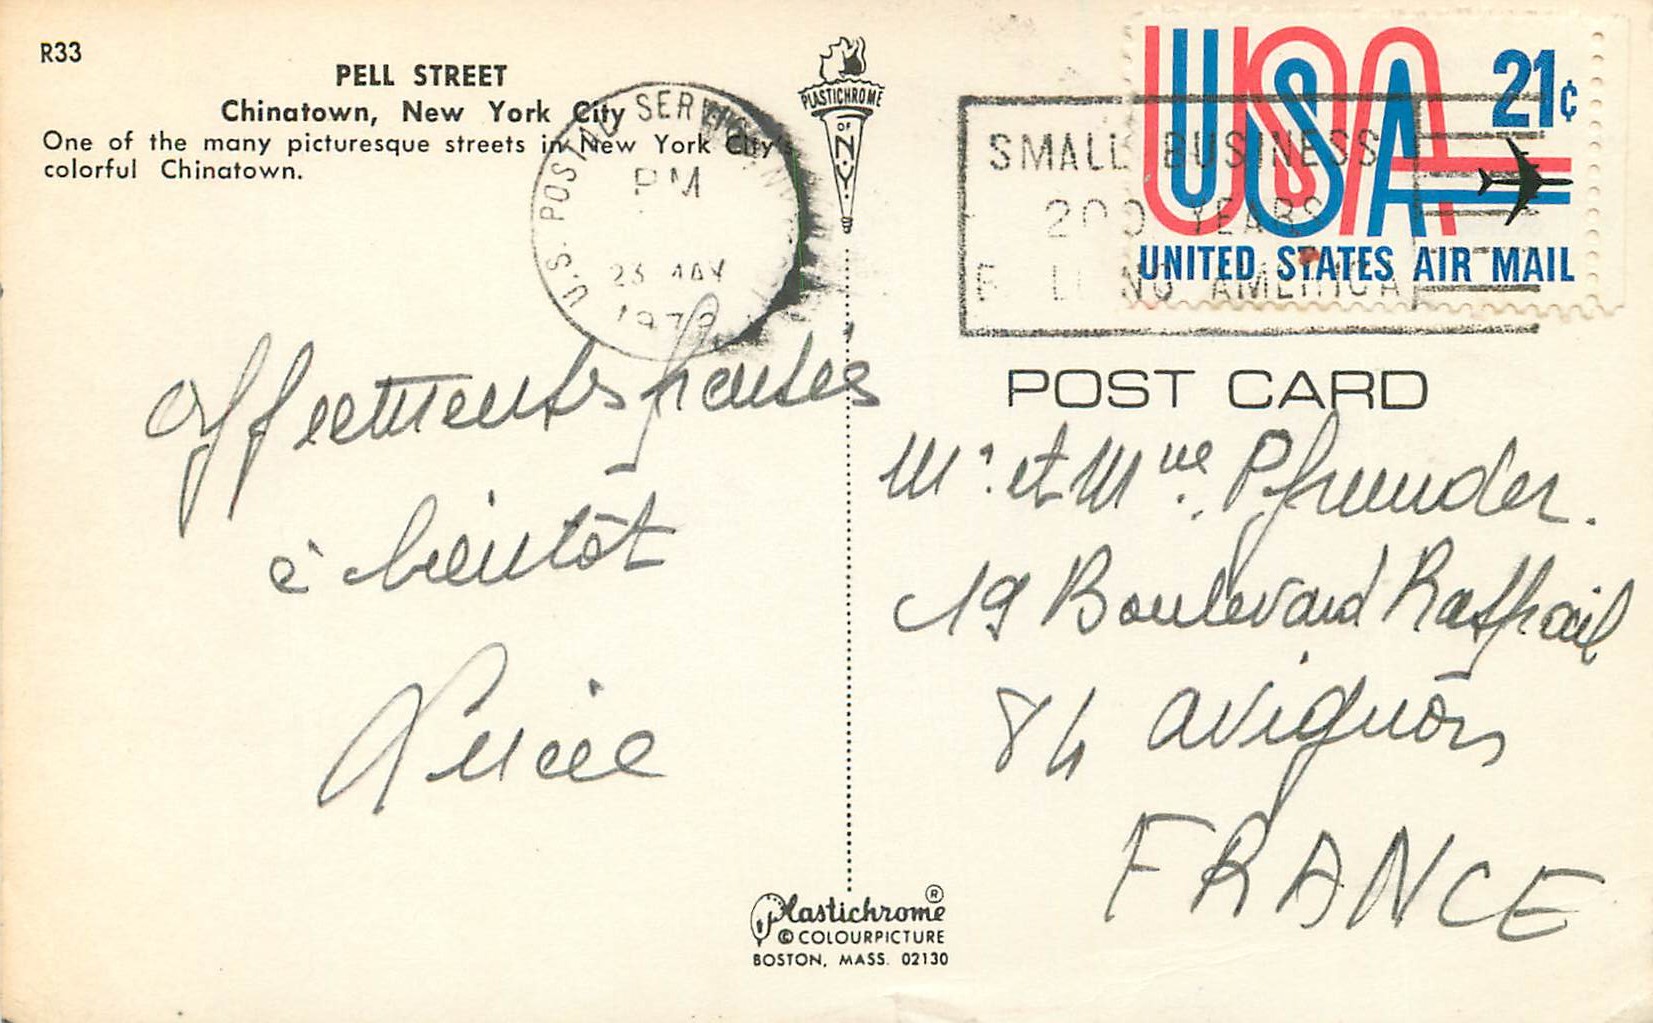 R33
PELL STREET
Chinatown, New York City
One of the many picturesque streets in New York City's
colorful Chinatown.
PLASTICHROME
OF
N.Y.
U.S. POSTAL SERVICE
PM
23 MAY
SMALL BUSINESS
200 YEARS
AMERICA
USA 21¢
UNITED STATES AIR MAIL
POST CARD
à bientôt
Mr. et Mme.
19 Boulevard Raspail
84 Avignon
FRANCE
Plastichrome ®
© COLOURPICTURE
BOSTON, MASS. 02130